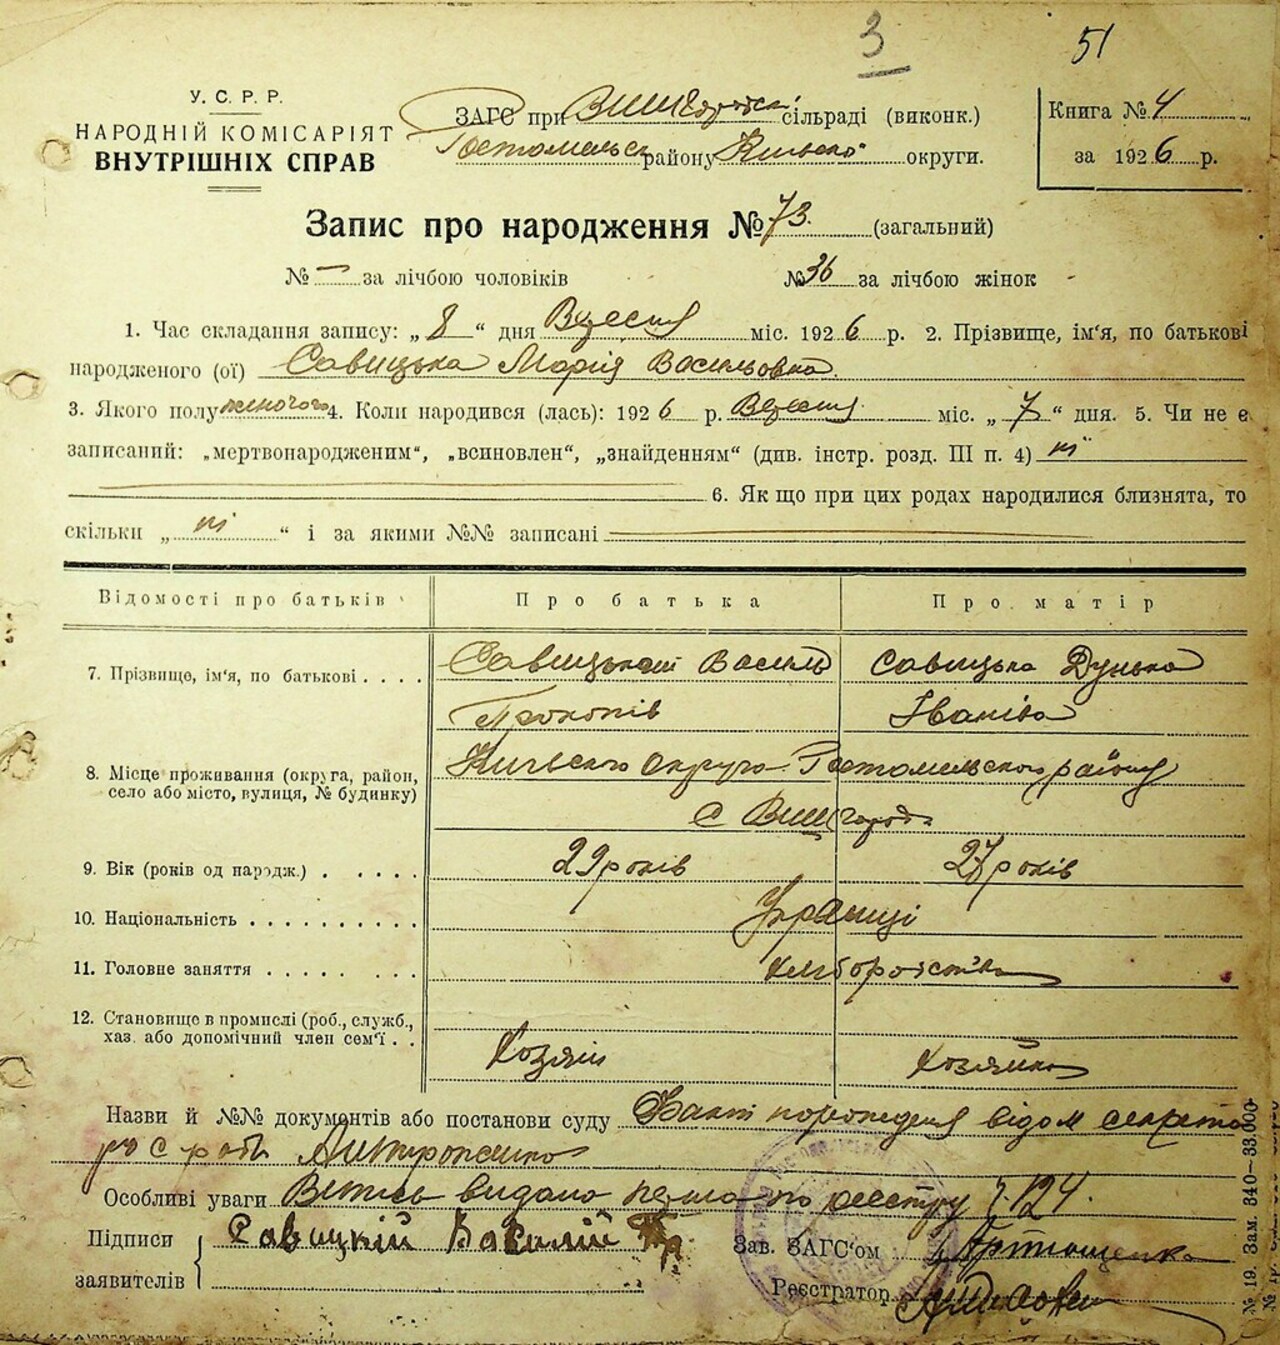 3
51
У. С. Р. Р.
НАРОДНІЙ КОМІСАРІЯТ
ВНУТРІШНІХ СПРАВ
ЗАГС при Вишгородськ. сільраді (виконк.)
Гостомельск району Київсько округи.
Книга № 4
за 1926 р.
Запис про народження № 73. (загальний)
№ — за лічбою чоловіків № 36 за лічбою жінок
1. Час складання запису: „ 8 “ дня Вересня міс. 1926 р. 2. Прізвище, ім'я, по батькові
народженого (ої) Савицька Марія Васильовна.
3. Якого полу женочого 4. Коли народився (лась): 1926 р. Вересня міс. „ 7 “ дня. 5. Чи не є
записаний: „мертвонародженим“, „всиновлен“, „знайденням“ (див. інстр. розд. III п. 4) ні
6. Як що при цих родах народилися близнята, то
скільки „ ні “ і за якими №№ записані
Відомості про батьків Про батька Про матір
7. Прізвище, ім'я, по батькові . . . . Савицький Василь Савицька Дунька
Прокопів Іваніва
8. Місце проживання (округа, район, село або місто, вулиця, № будинку) Київского округо Гостомельского району
с Вишгород
9. Вік (років од народж.) . . . . . 29 років 27 років
10. Національність . . . . . . . . . . Українці
11. Головне заняття . . . . . . . хліборобство
12. Становище в промислі (роб., служб.,
хаз. або допомічний член сем'ї . . Хозяін Хозяйка
Назви й №№ документів або постанови суду Факт народженя відом секрета
рю с ради
Особливі уваги Випись видано перша по реєстру № 124.
Підписи Савицкій Василій Пр Зав. ЗАГС'ом
заявителів Реєстратор
№ 19. Зам. 340—33.000